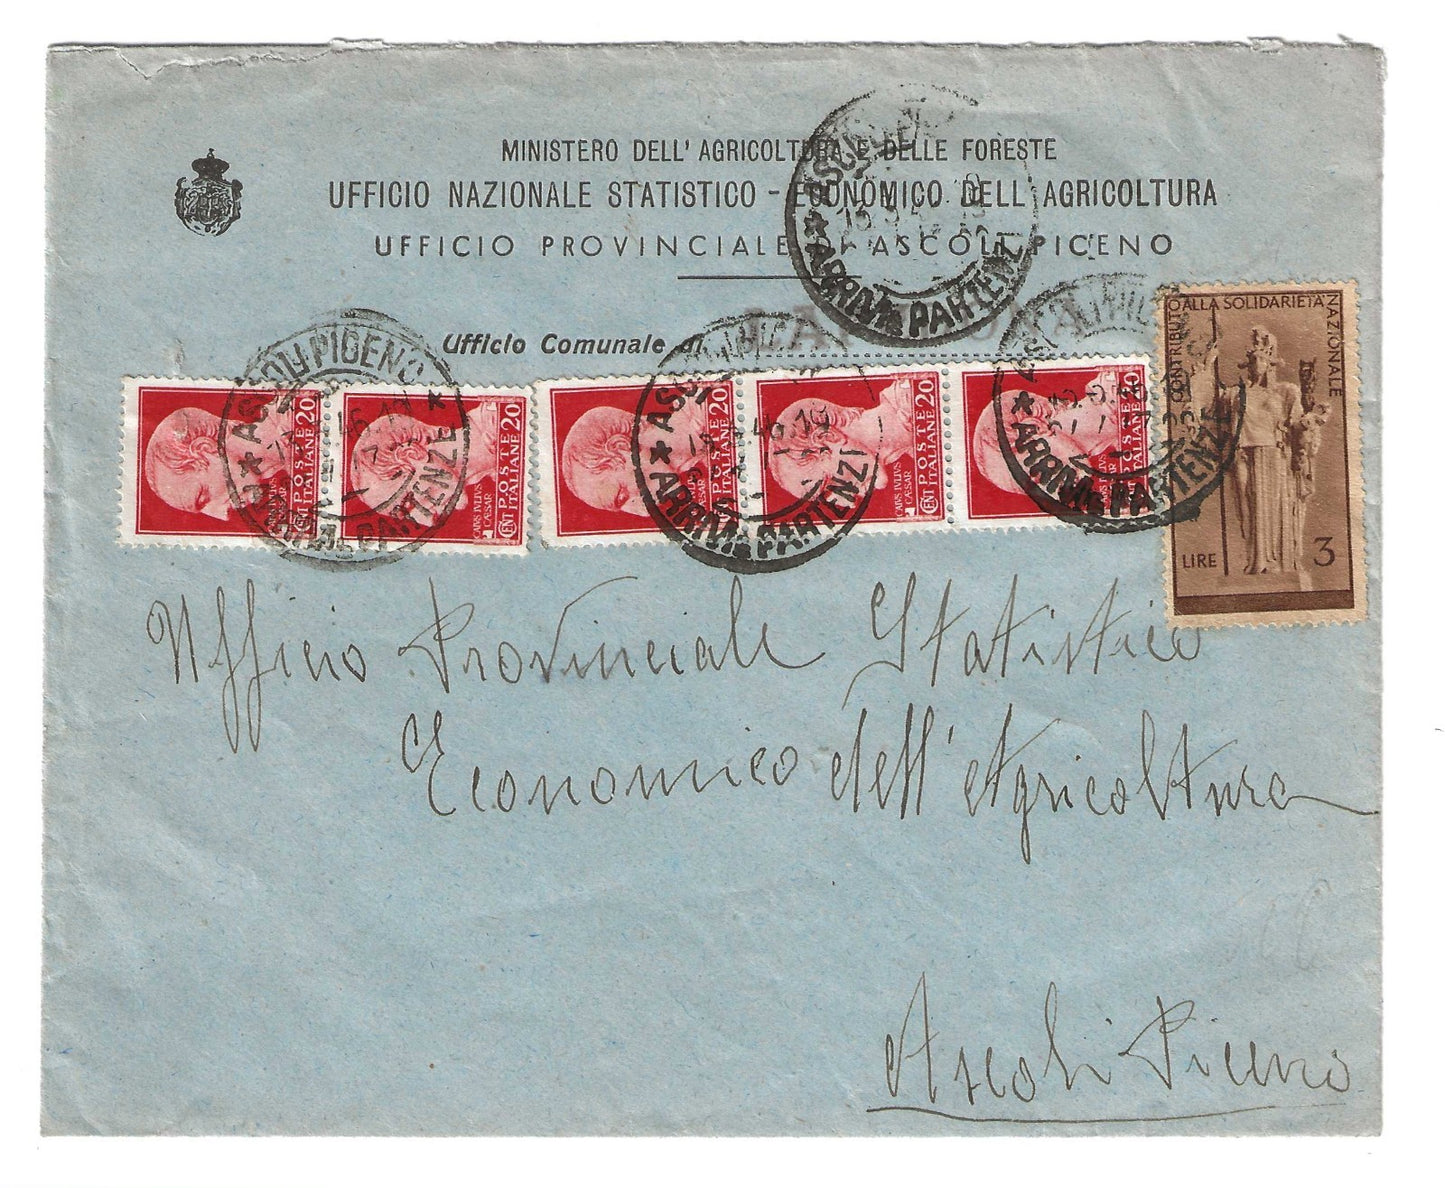 MINISTERO DELL' AGRICOLTURA E DELLE FORESTE
UFFICIO NAZIONALE STATISTICO - ECONOMICO DELL'AGRICOLTURA
UFFICIO PROVINCIALE DI ASCOLI PICENO
ASCOLI
ARRIVI E PARTENZE
Ufficio Comunale di
ASCOLI PICENO
ARRIVI E PARTENZE
ASCOLI PICENO
ARRIVI E PARTENZE
ASCOLI PICENO
ARRIVI E PARTENZE
POSTE ITALIANE CENT 20
CAIVS IVLIVS CÆSAR
POSTE ITALIANE CENT 20
CAIVS IVLIVS CÆSAR
POSTE ITALIANE CENT 20
POSTE ITALIANE CENT 20
CAIVS IVLIVS CÆSAR
20
CONTRIBUTO ALLA SOLIDARIETÀ NAZIONALE
LIRE 3
Ufficio Provinciale Statistico
Economico dell'Agricoltura
Ascoli Piceno